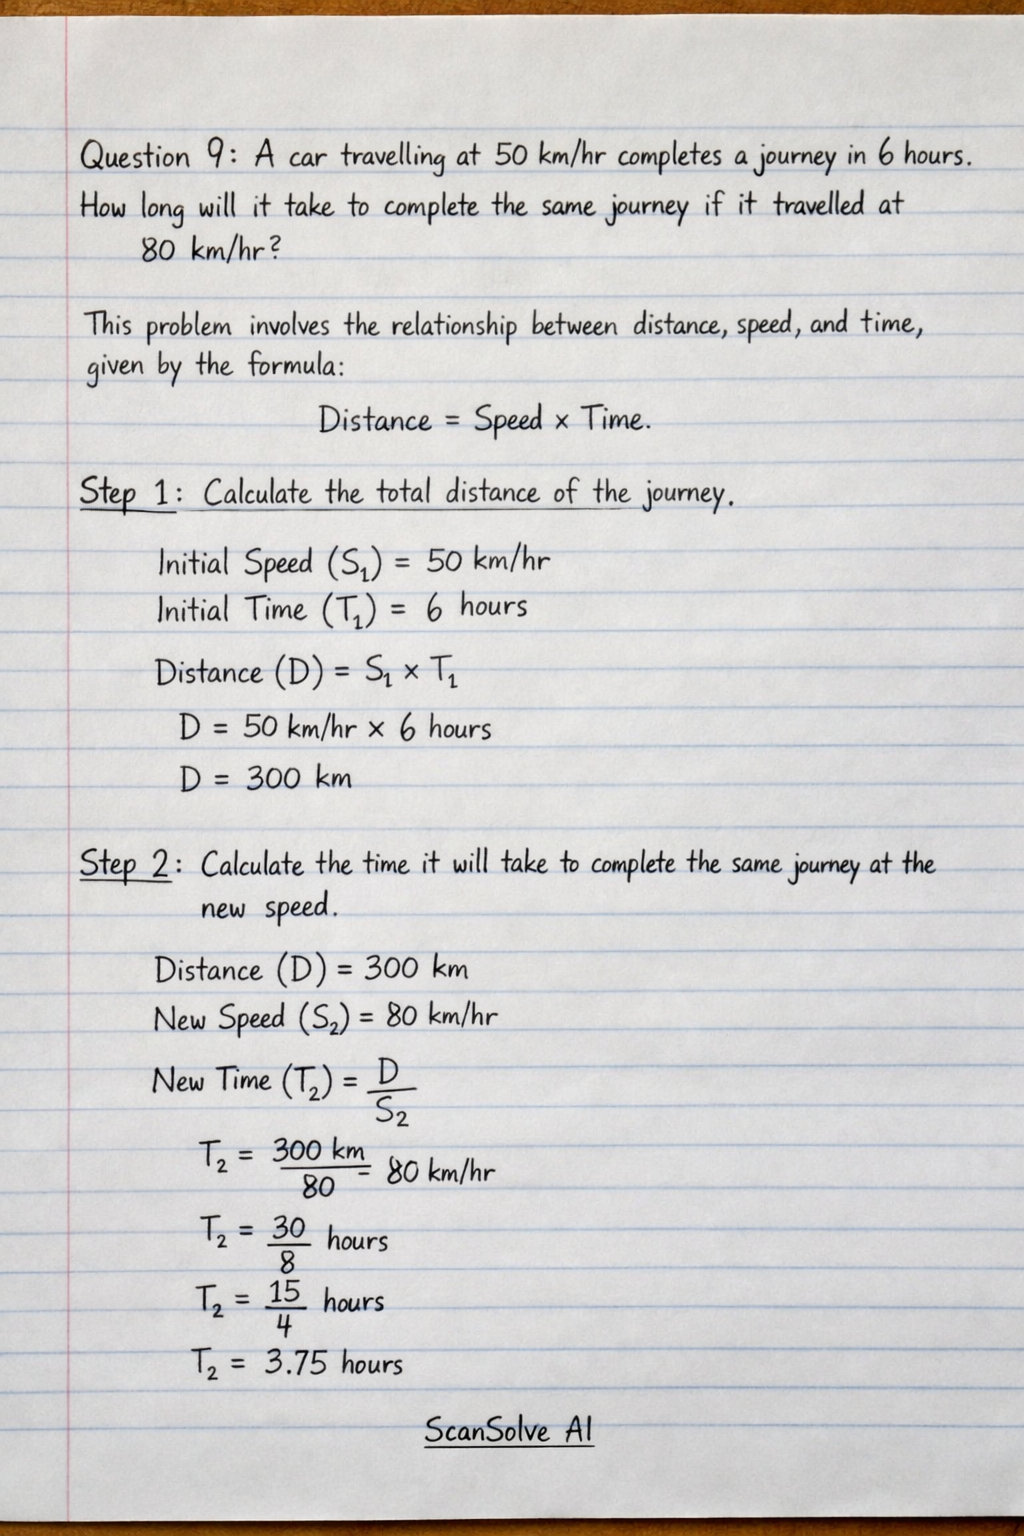 Question 9: A car travelling at 50 km/hr completes a journey in 6 hours.
How long will it take to complete the same journey if it travelled at
80 km/hr?
This problem involves the relationship between distance, speed, and time,
given by the formula:
Distance = Speed × Time.
Step 1: Calculate the total distance of the journey.
Initial Speed (S₁) = 50 km/hr
Initial Time (T₁) = 6 hours
Distance (D) = S₁ × T₁
D = 50 km/hr × 6 hours
D = 300 km
Step 2: Calculate the time it will take to complete the same journey at the
new speed.
Distance (D) = 300 km
New Speed (S₂) = 80 km/hr
New Time (T₂) = D/S₂
T₂ = 300 km/80 = 80 km/hr
T₂ = 30/8 hours
T₂ = 15/4 hours
T₂ = 3.75 hours
ScanSolve AI